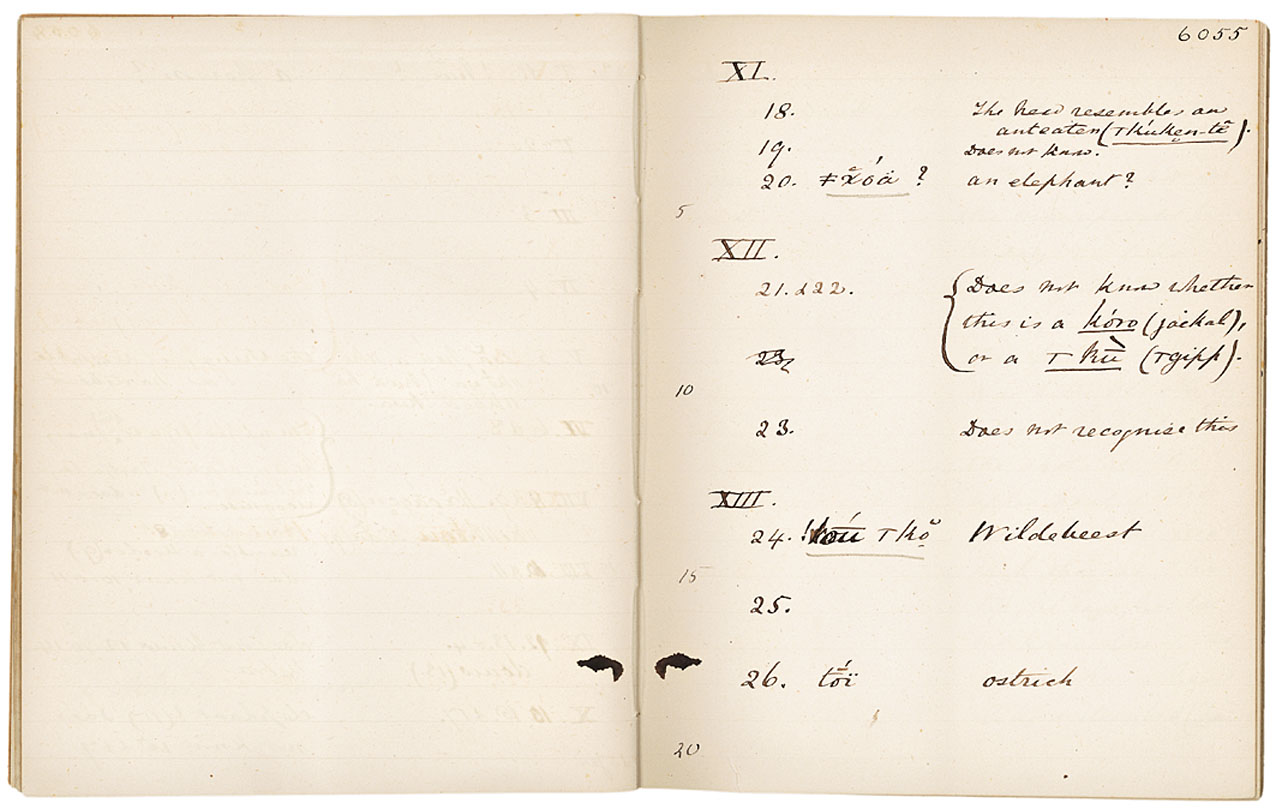 6055
XI.
18. The head resembles an
anteater (Ƭkúken-tĕ).
19. Does not know.
20. ǂx̆óä ? an elephant?
5
XII.
21. & 22. Does not know whether
this is a kóro (jackal),
23, or a Ƭ kù̄ (Ƭgipp).
10
23. Does not recognise this
XIII.
24. Ƭkŏ Wildebeest
15
25.
26. tóï ostrich
20